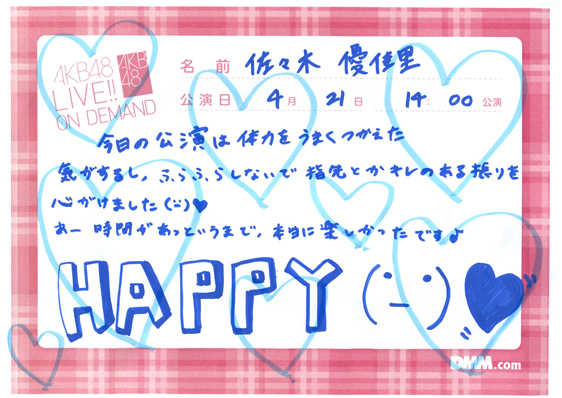 AKB48
LIVE!!
ON DEMAND
AKB
48
名前 佐々木 優佳里
公演日 4月 21日 14:00公演
今日の公演は体力をうまくつかえた
気がするし、ふらふらしないで 指先とかキレのある振りを
心がけました(:-)♥
あー 時間があっというまで、本当に楽しかったです♪
HAPPY (・_・)♥
DMM.com